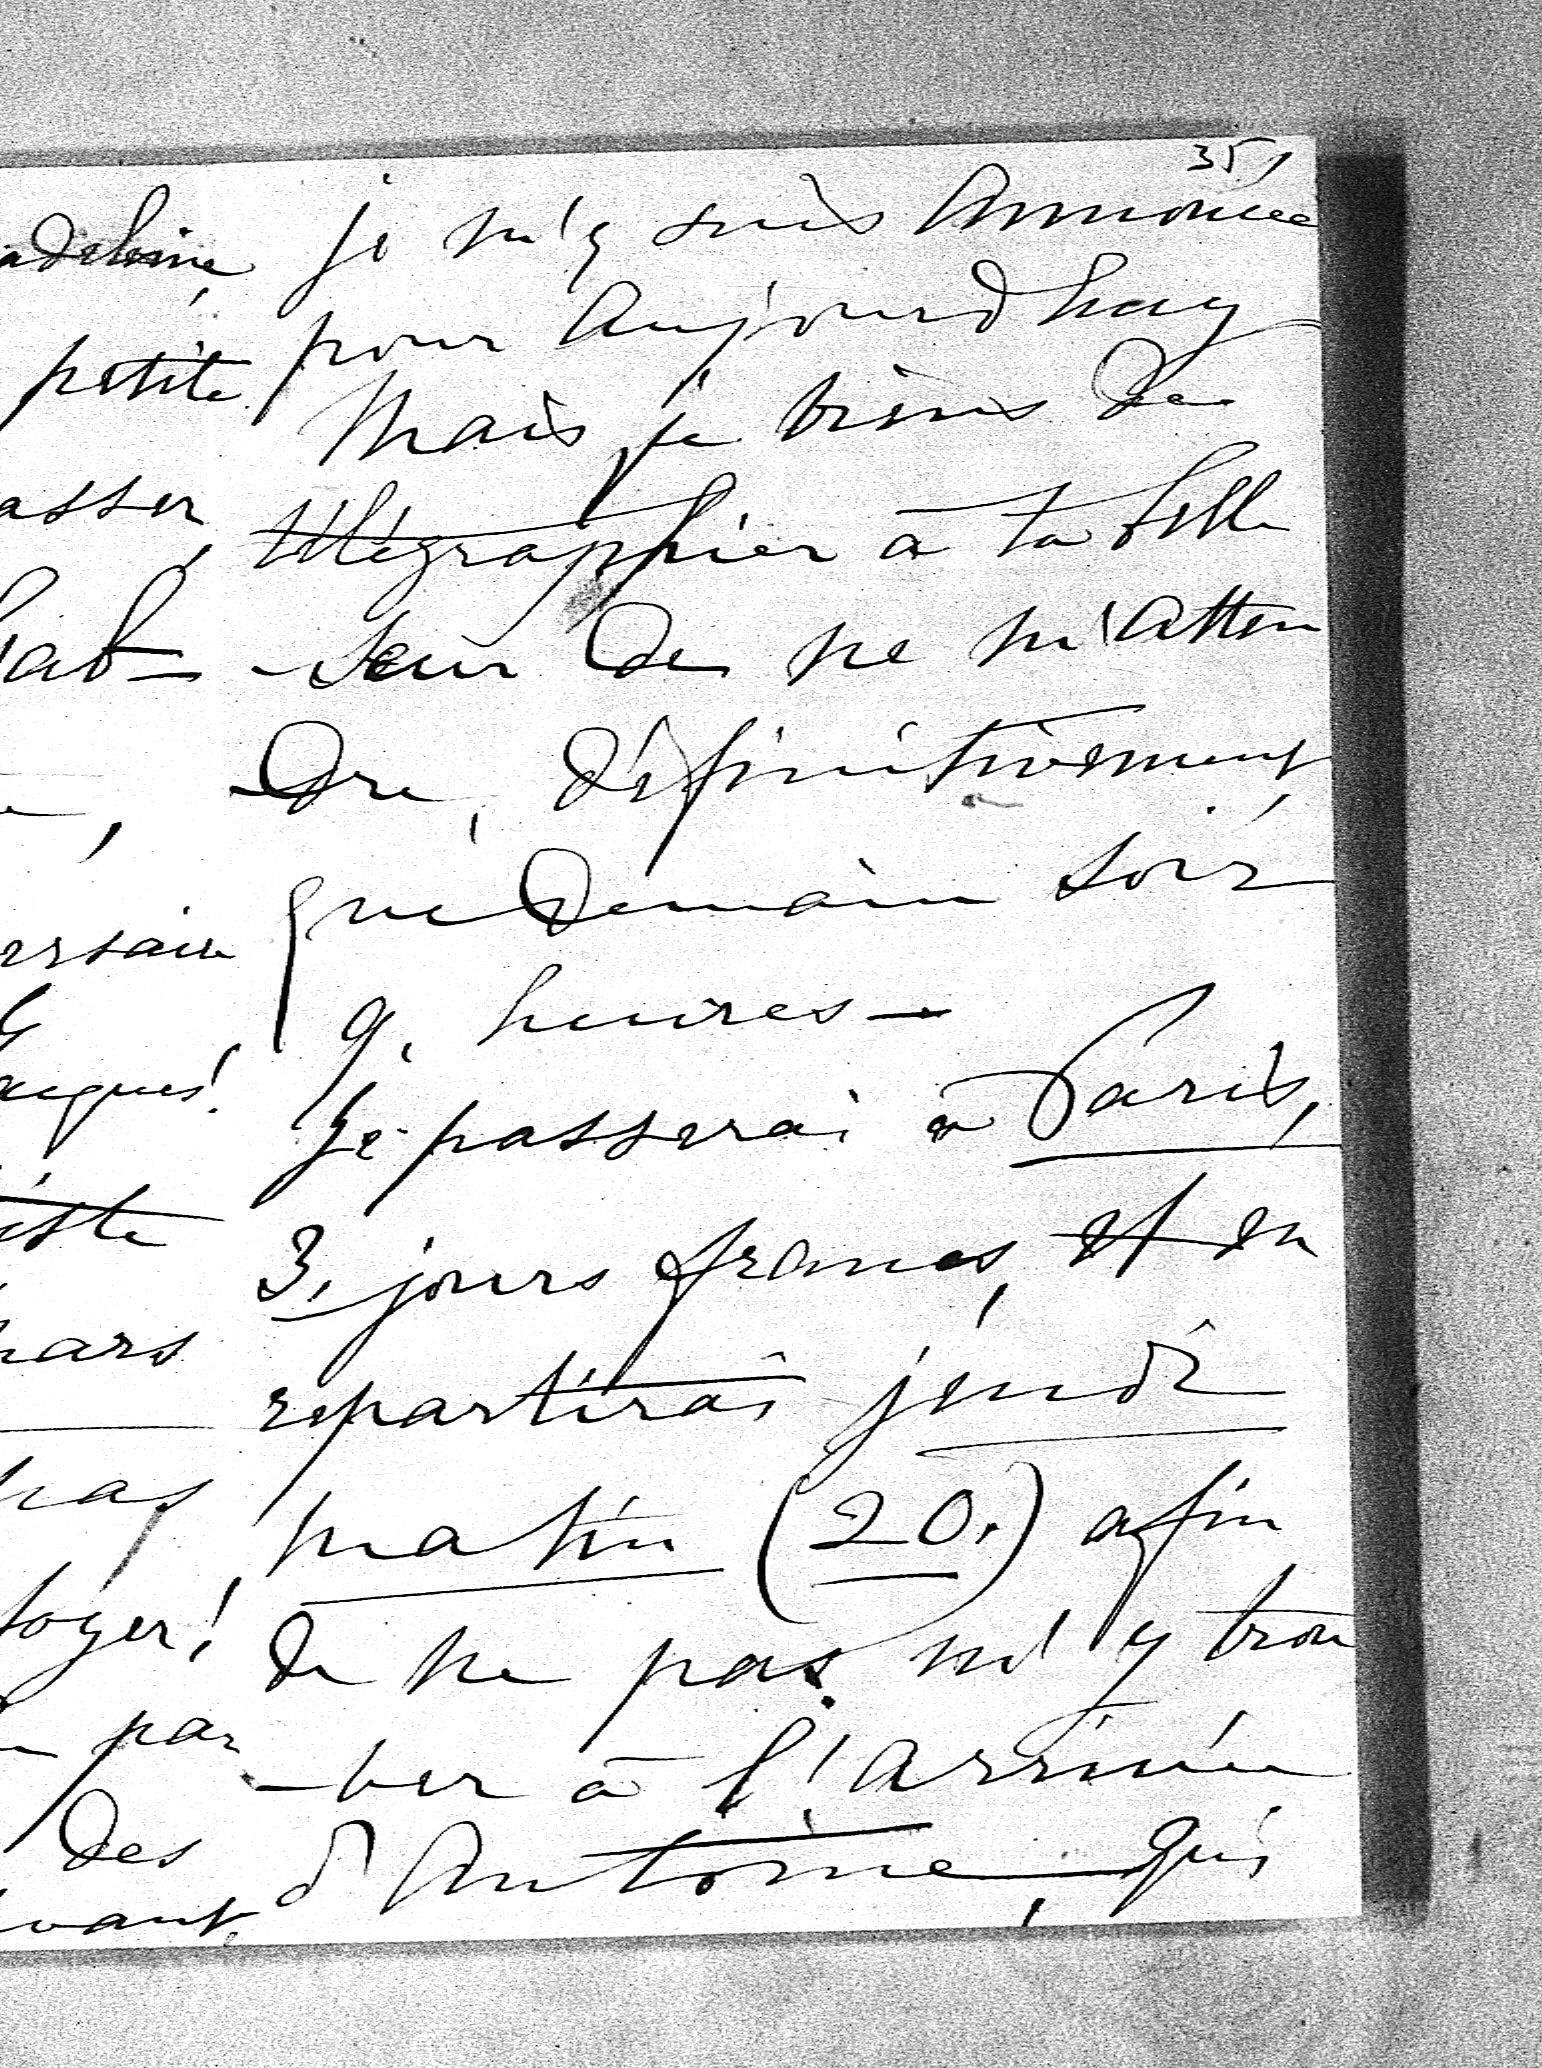 adeleine,
petite
asser,
hab-
ersaire
acques!
iste
mars
pas
toyer!
par
des
vant.
35
je m'y suis annoncée
pour aujourd'huy
Mais, je viens de
télégraphier à ta belle
-soeur de ne m'atten
-dre, définitivement
que demain soir
9. heures -
Je passerai à Paris,
3. jours francs, et en
repartirai jeudi
matin (20.) afin
de ne pas m'y trou
-ver à l'arrivée
d'Antoine, qui